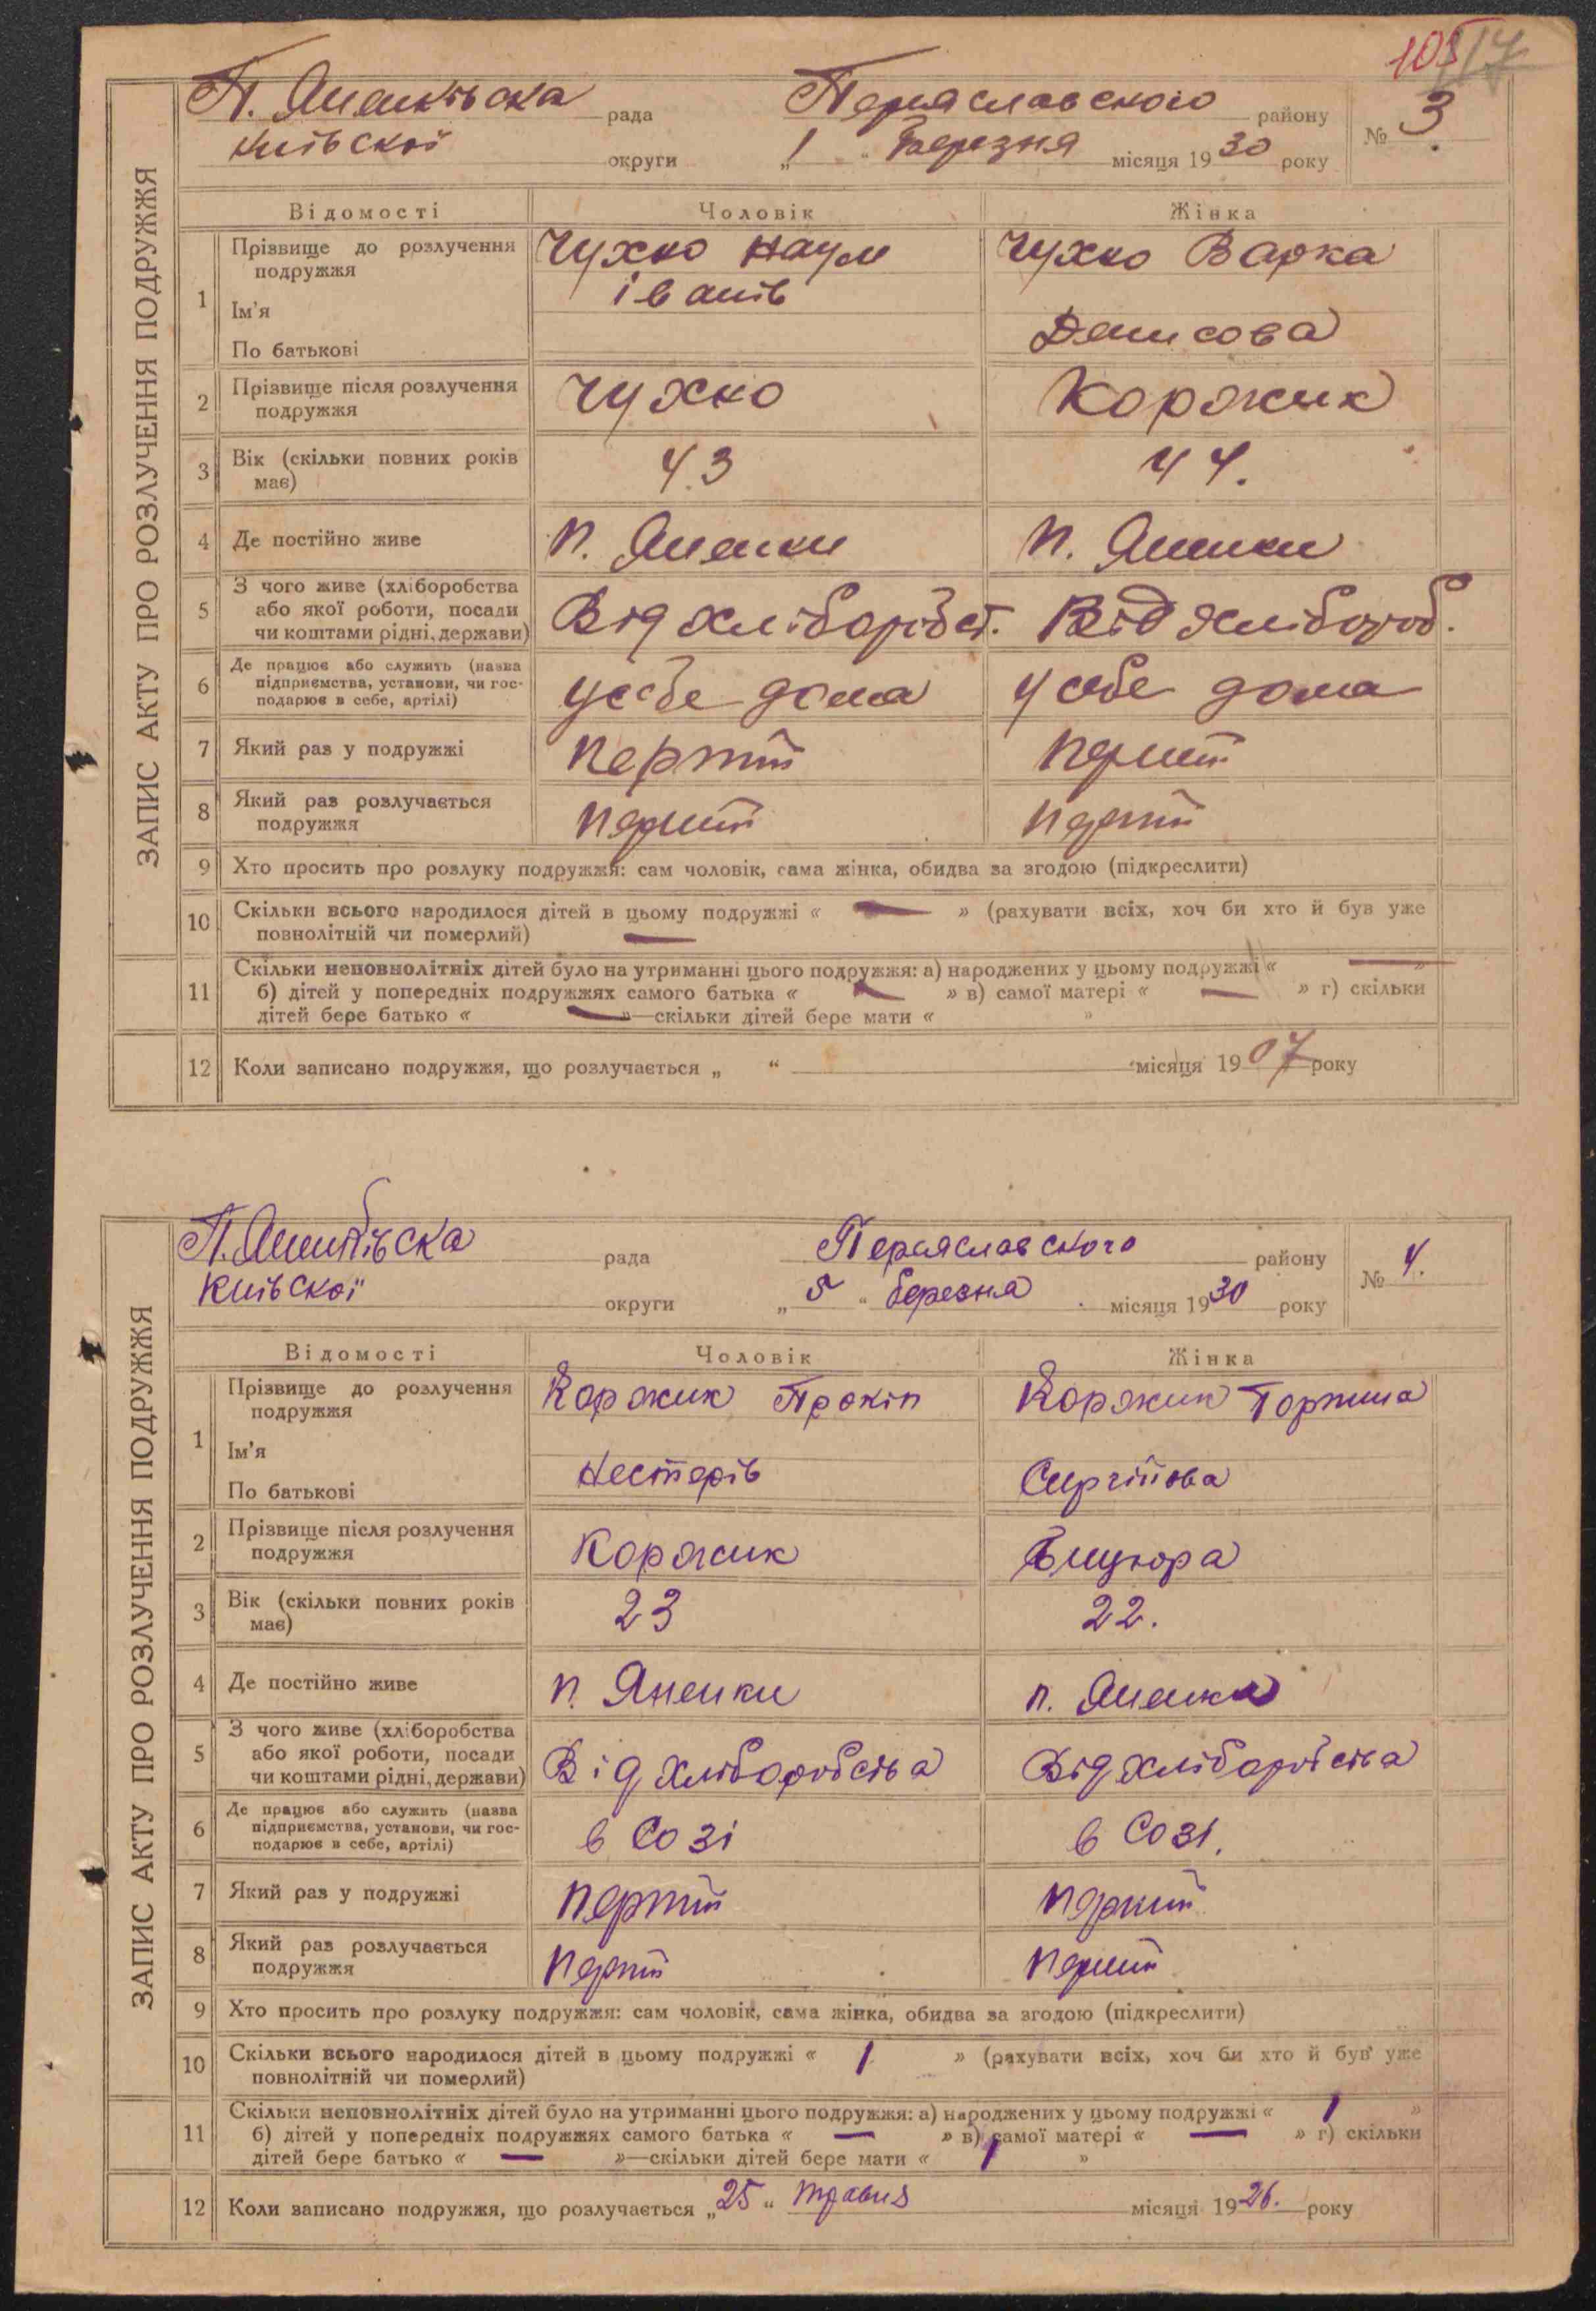 105 117
ЗАПИС АКТУ ПРО РОЗЛУЧЕННЯ ПОДРУЖЖЯ
П. Яненківська рада Переяславского району № 3
Київскої округи „ 1 “ Березня місяця 1930 року
Відомості Чоловік Жінка
1 Прізвище до розлучення подружжя Чухно Наум Чухно Варка
Ім'я іванів
По батькові Денисова
2 Прізвище після розлучення подружжя Чухно Коржик
3 Вік (скільки повних років має) 43 44.
4 Де постійно живе п. Яненки п. Яненки
5 З чого живе (хліборобства або якої роботи, посади чи коштами рідні, держави) Від хліборобст. Від хлібороб.
6 Де працює або служить (назва підприємства, установи, чи господарює в себе, артілі) у себе дома у себе дома
7 Який раз у подружжі
8 Який раз розлучається подружжя
9 Хто просить про розлуку подружжя: сам чоловік, сама жінка, обидва за згодою (підкреслити)
10 Скільки всього народилося дітей в цьому подружжі « — » (рахувати всіх, хоч би хто й був уже
повнолітній чи померлий) —
11 Скільки неповнолітніх дітей було на утриманні цього подружжя: а) народжених у цьому подружжі « — »
б) дітей у попередніх подружжях самого батька « — » в) самої матері « — » г) скільки
дітей бере батько « — »—скільки дітей бере мати « »
12 Коли записано подружжя, що розлучається „ “ місяця 1907 року
ЗАПИС АКТУ ПРО РОЗЛУЧЕННЯ ПОДРУЖЖЯ
рада Переяславского району № 4.
Київскої округи „ 5 “ березня місяця 1930 року
Відомості Чоловік Жінка
1 Прізвище до розлучення подружжя Коржик Прокіп Коржик
Ім'я
По батькові Нестерів Сиргійова
2 Прізвище після розлучення подружжя Коржик Бицюра
3 Вік (скільки повних років має) 23 22.
4 Де постійно живе п. Яненки п. Яненки
5 З чого живе (хліборобства або якої роботи, посади чи коштами рідні, держави) Від хліборобства Від хліборобства
6 Де працює або служить (назва підприємства, установи, чи господарює в себе, артілі) в Созі в Созі.
7 Який раз у подружжі
8 Який раз розлучається подружжя
9 Хто просить про розлуку подружжя: сам чоловік, сама жінка, обидва за згодою (підкреслити)
10 Скільки всього народилося дітей в цьому подружжі « 1 » (рахувати всіх, хоч би хто й був уже
повнолітній чи померлий)
11 Скільки неповнолітніх дітей було на утриманні цього подружжя: а) народжених у цьому подружжі « 1 »
б) дітей у попередніх подружжях самого батька « — » в) самої матері « — » г) скільки
дітей бере батько « — »—скільки дітей бере мати « 1 »
12 Коли записано подружжя, що розлучається „ 25 “ травня місяця 1926. року